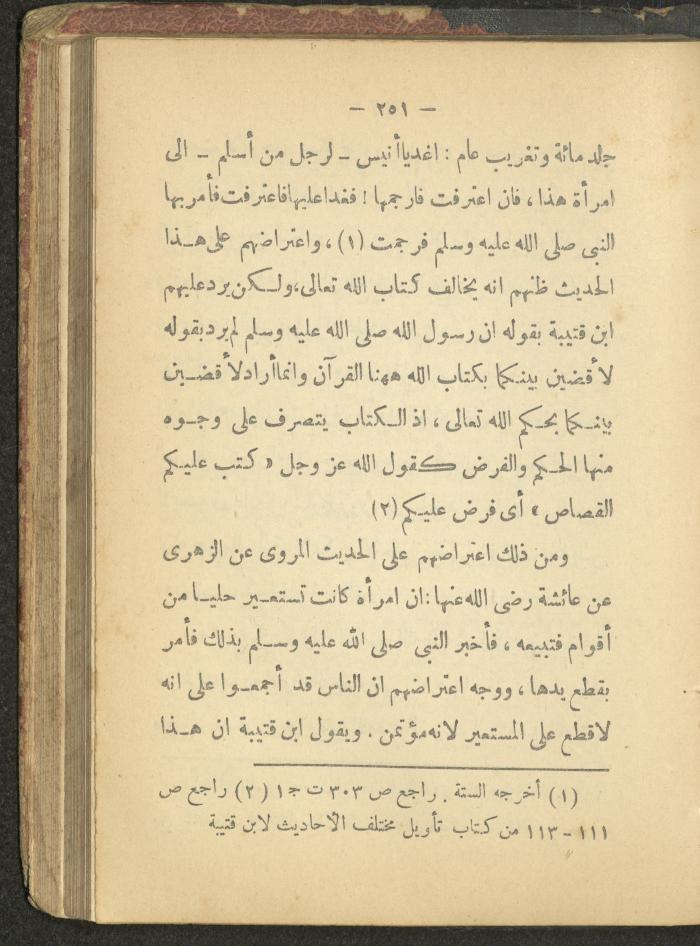 — ٢٥١ —
جلد مائة وتغريب عام : اغد ياأنيس ـ لرجل من أسلم ـ الى
امرأة هذا ، فان اعترفت فارجمها ! فغدا عليها فاعترفت فأمر بها
النبى صلى الله عليه وسلم فرجمت (١) ، واعتراضهم على هـذا
الحديث ظنهم انه يخالف كتاب الله تعالى،ولـكن يرد عليهم
ابن قتيبة بقوله ان رسول الله صلى الله عليه وسلم لم يرد بقوله
لأقضين بينـكما بكتاب الله ههنا القرآن وانما أراد لأ قضـين
بينـكما بحـكم الله تعالى ، اذ الـكتاب يتصرف على وجـوه
منها الحـكم والفرض كقول الله عز وجل « كتب عليـكم
القصاص » أى فرض عليـكم (٢)
ومن ذلك اعتراضهم على الحديث المروى عن الزهرى
عن عائشة رضى الله عنها : ان امرأة كانت تستعـير حليـا من
أقوام فتبيعه ، فأخبر النبى صلى الله عليه وسـلم بذلك فأمر
بقطع يدها ، ووجه اعتراضهم ان الناس قد أجمعـوا على انه
لاقطع على المستعير لانه مؤتمن . ويقول ابن قتيبة ان هـذا
(١) أخرجه الستة . راجع ص ٣٠٣ ت ج ١ (٢) راجع ص
١١١ - ١١٣ من كـتاب تأويل مختلف الأحاديث لابن قتيبة